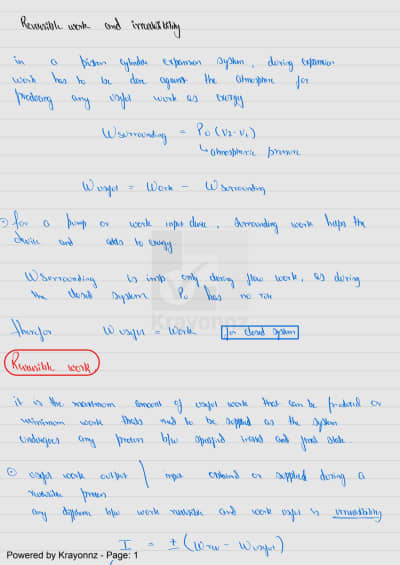 Reversible work and irreversibility
in a piston cylinder expansion system, during expansion
work has to be done against the atmosphere for
producing any useful work as exergy
Wsurrounding = Po (V2-V1)
↳ atmospheric pressure
Wuseful = Work - Wsurrounding
for a pump or work input device, surrounding work helps the
device and adds to exergy
Wsurrounding is imp only during flow work, as during
the closed system Po has no role
therefor Wuseful = Work for closed system
Krayonnz
Reversible work
it is the maximum amount of useful work that can be produced or
minimum work thats need to be supplied as the system
undergoes any process b/w specified initial and final state.
useful work output / input obtained or supplied during a
reversible process
any difference b/w work reversible and work useful is irreversibility
I = ± (Wrev - Wuseful)
Powered by Krayonnz - Page: 1